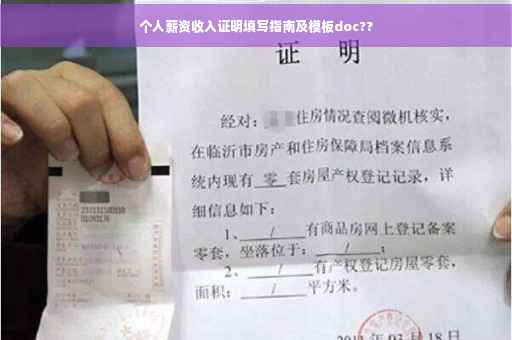 个人薪资收入证明填写指南及模板doc??
证 明
经对：住房情况查阅微机核实，
在临沂市房产和住房保障局档案信息系
统内现有 零 套房屋产权登记记录，详
细信息如下：
1、 / 有商品房网上登记备案
零套，坐落位于： / ；
2、 / 有产权登记房屋零套，
面积： / 平方米。
03 月 18 日